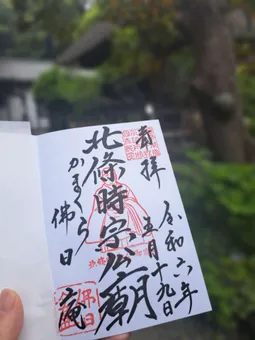 奉拝
令和六年
五月十九日
北條時宗公廟
かまくら
佛日
庵
佛日